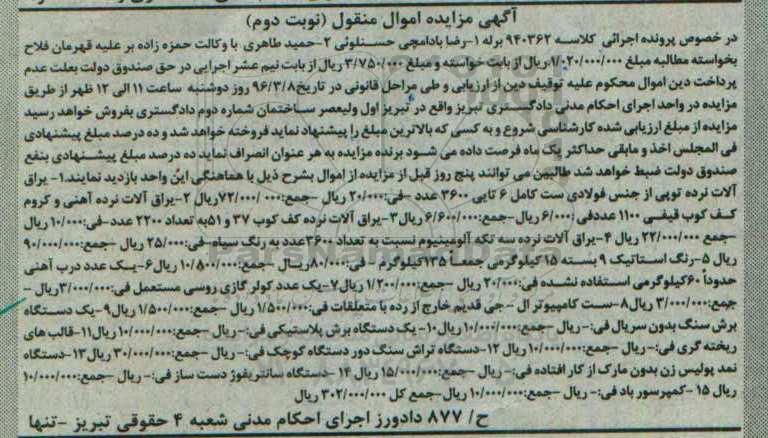 آگهی مزایده اموال منقول (نوبت دوم)
در خصوص پرونده اجرائی کلاسه ۹۴۰۳۶۲ برله ۱-رضا بادامچی حسنلوئی ۲-حمید طاهری با وکالت حمزه زاده بر علیه قهرمان فلاح
بخواسته مطالبه مبلغ ۱/۰۲۰/۰۰۰/۰۰۰ ریال از بابت خواسته و مبلغ ۳/۷۵۰/۰۰۰ ریال از بابت نیم عشر اجرایی در حق صندوق دولت بعلت عدم
پرداخت دین اموال محکوم علیه توقیف دین از ارزیابی و طی مراحل قانونی در تاریخ ۹۶/۳/۸ روز دوشنبه ساعت ۱۱ الی ۱۲ ظهر از طریق
مزایده در واحد اجرای احکام مدنی دادگستری تبریز واقع در تبریز اول ولیعصر ساختمان شماره دوم دادگستری بفروش خواهد رسید
مزایده از مبلغ ارزیابی شده کارشناسی شروع و به کسی که بالاترین مبلغ را پیشنهاد نماید فروخته خواهد شد و ده درصد مبلغ پیشنهادی
فی المجلس اخذ و مابقی حداکثر یک ماه فرصت داده می شود برنده مزایده به هر عنوان انصراف نماید ده درصد مبلغ پیشنهادی بنفع
صندوق دولت ضبط خواهد شد طالبین می توانند پنج روز قبل از مزایده از اموال بشرح ذیل با هماهنگی این واحد بازدید نمایند.۱- یراق
آلات نرده توپی از جنس فولادی ست کامل ۶ تایی ۳۶۰۰ عدد -فی:۲۰/۰۰۰ ریال -جمع:۷۲/۰۰۰/۰۰۰ ریال ۲-یراق آلات نرده آهنی و کروم
کف کوپ قیفی ۱۱۰۰ عددفی:۶/۰۰۰ ریال-جمع:۶/۶۰۰/۰۰۰ ریال۳-یراق آلات نرده کف کوب ۳۷ و ۵۱به تعداد ۲۲۰۰ عدد-فی:۱۰/۰۰۰ ریال
-جمع ۲۲/۰۰۰/۰۰۰ ریال ۴-یراق آلات نرده سه تکه آلومینیوم نسبت به تعداد ۳۶۰۰عدد به رنگ سیاه-فی:۲۵/۰۰۰ ریال -جمع:۹۰/۰۰۰/۰۰۰
ریال ۵-رنگ استاتیک ۹ بسته ۱۵ کیلوگرمی جمعاً ۱۳۵کیلوگرم - فی:۸۰/۰۰۰ ریال -جمع:۱۰/۸۰۰/۰۰۰ ریال۶-یک عدد درب آهنی
حدوداً ۶۰کیلوگرمی استفاده نشده فی:۲۰/۰۰۰ ریال -جمع:۱/۲۰۰/۰۰۰ ریال۷-یک عدد کولر گازی روسی مستعمل فی:۳/۰۰۰/۰۰۰ریال -
جمع:۳/۰۰۰/۰۰۰ ریال۸-ست کامپیوتر ال - جی قدیم خارج از رده با متعلقات فی:۱/۵۰۰/۰۰۰ ریال -جمع:۱/۵۰۰/۰۰۰ ریال۹-یک دستگاه
برش سنگ بدون سریال فی:- ریال -جمع:۱۰/۰۰۰/۰۰۰ ریال۱۰-یک دستگاه برش پلاستیکی فی:- ریال -جمع:۱۰/۰۰۰/۰۰۰ ریال۱۱-قالب های
ریخته گری فی:- ریال -جمع:۱۰/۰۰۰/۰۰۰ ریال ۱۲-دستگاه تراش سنگ دور دستگاه کوچک فی:- ریال -جمع:۳۰/۰۰۰/۰۰۰ ریال۱۳-دستگاه
نمد پولیس زن بدون مارک از کار افتاده فی:- ریال -جمع:۱۵/۰۰۰/۰۰۰ ریال ۱۴ -دستگاه سانتریفوژ دست ساز فی:- ریال -جمع:۱۰/۰۰۰/۰۰۰
ریال ۱۵ -کمپرسور باد فی:- ریال -جمع:۱۰/۰۰۰/۰۰۰ ریال -جمع کل ۳۰۲/۰۰۰/۰۰۰ ریال
ح/ ۸۷۷ دادورز اجرای احکام مدنی شعبه ۴ حقوقی تبریز -تنها